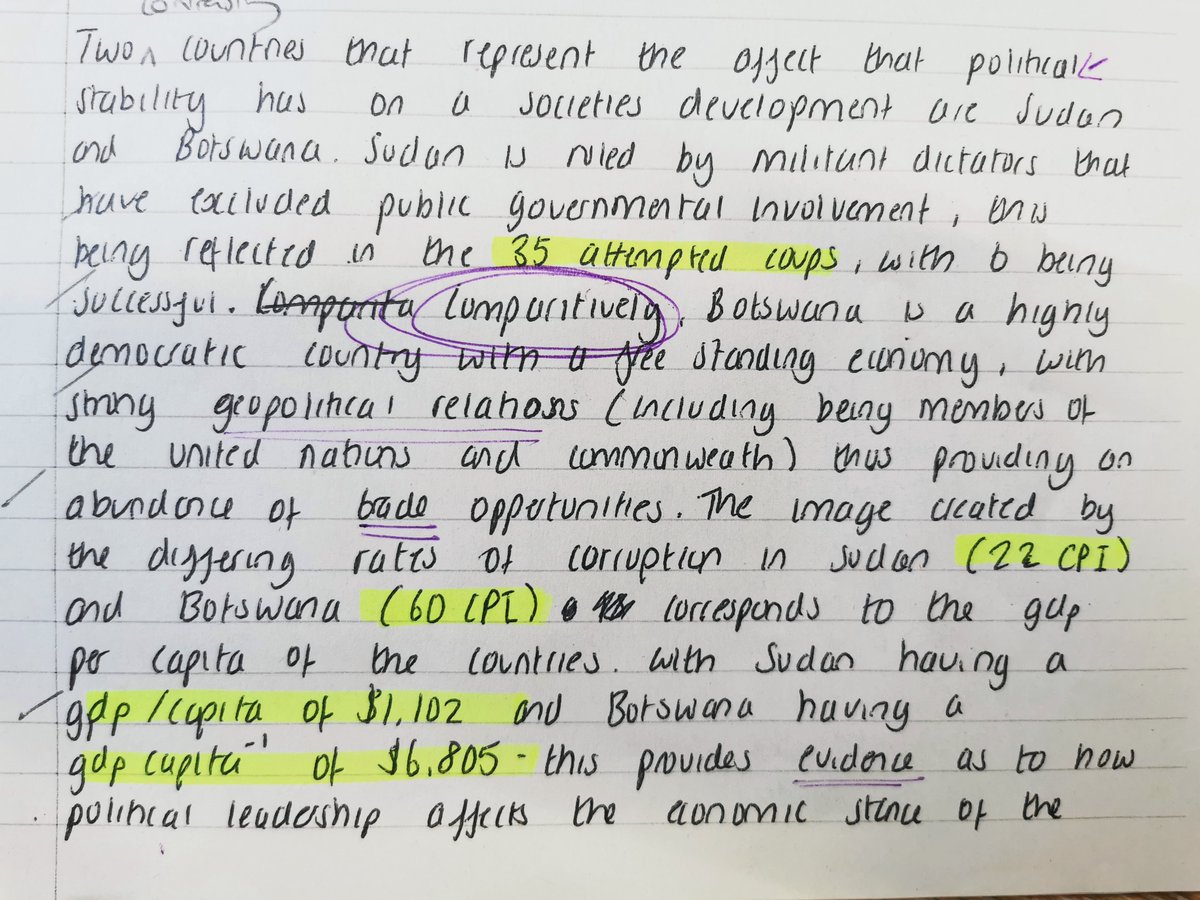 contrasting
Two ^ countries that represent the affect that political
stability has on a societies development are Sudan
and Botswana. Sudan is ruled by militant dictators that
have excluded public governmental involvement, this
being reflected in the 35 attempted coups, with 6 being
successful. Comparita Comparitively, Botswana is a highly
democratic country with a free standing economy, with
strong geopolitical relations (including being members of
the united nations and commonweath) thus providing an
abundance of trade opportunities. The image created by
the differing rates of corruption in Sudan (22 CPI)
and Botswana (60 CPI) corresponds to the gdp
per capita of the countries. With Sudan having a
gdp/capita of $1,102 and Botswana having a
gdp capita⁻¹ of $6,805 - this provides evidence as to how
political leadership affects the economic stance of the